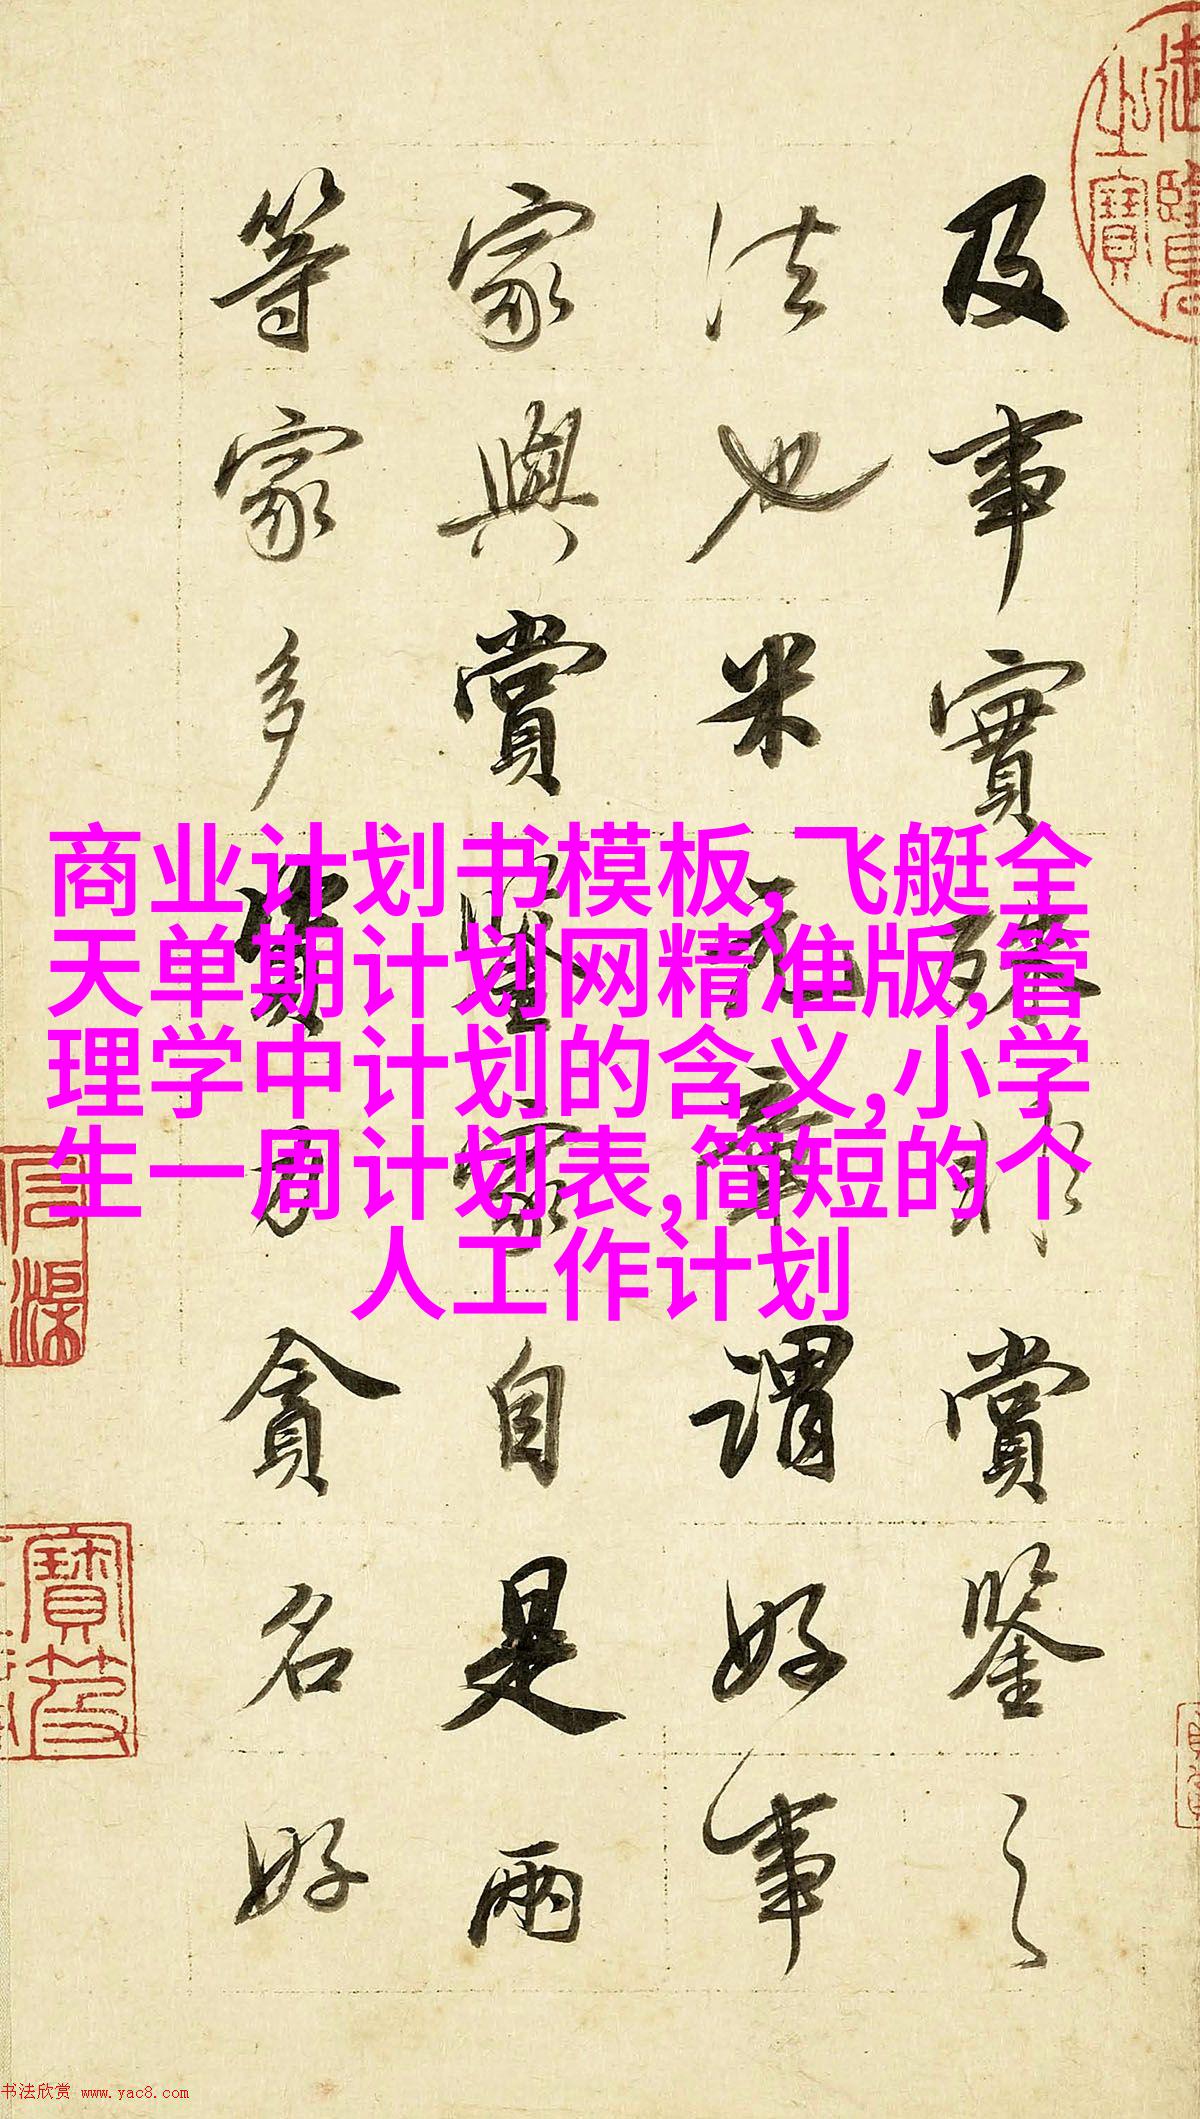 御覽
之寶
及事實殊非賞鑒之
法也米元章謂好事
家與賞鑒家自是兩
等家多資力貪名好
商业计划书模板,飞艇全
天单期计划网精准版,管
理学中计划的含义,小学
生一周计划表,简短的个
人工作计划
寶笈
书法欣赏 www.yac8.com